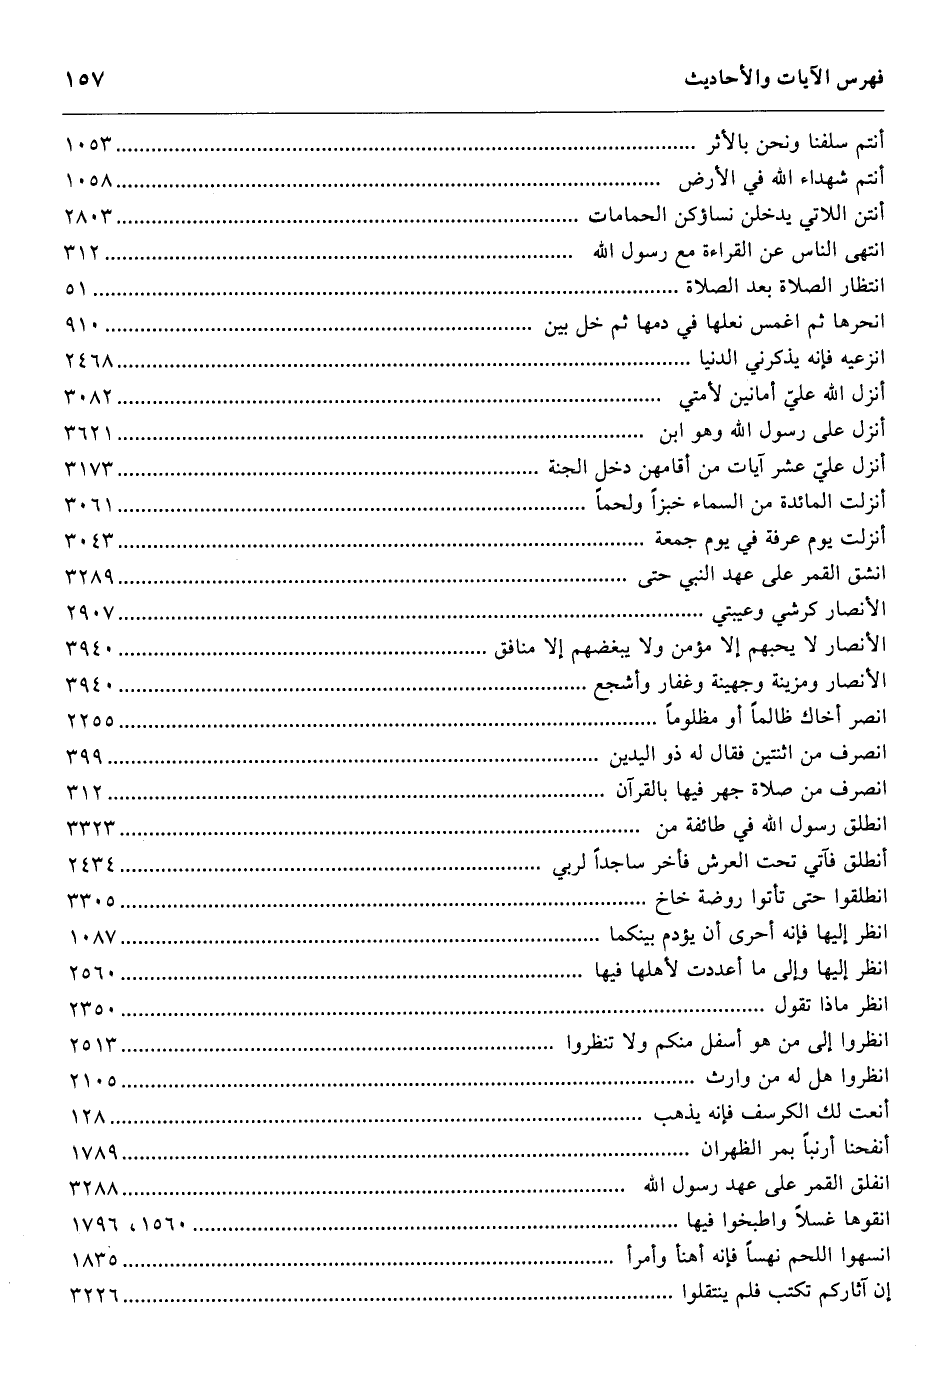 فهرس الآيات والأحاديث ١٥٧
أنتم سلفنا ونحن بالأثر ١٠٥٣
أنتم شهداء الله في الأرض ١٠٥٨
أنتن اللاتي يدخلن نساؤكن الحمامات ٢٨٠٣
انتهى الناس عن القراءة مع رسول الله ٣١٢
انتظار الصلاة بعد الصلاة ٥١
انحرها ثم اغمس نعلها في دمها ثم خل بين ٩١٠
انزعيه فإنه يذكرني الدنيا ٢٤٦٨
أنزل الله عليّ أمانين لأمتي ٣٠٨٢
أنزل على رسول الله وهو ابن ٣٦٢١
أنزل عليّ عشر آيات من أقامهن دخل الجنة ٣١٧٣
أنزلت المائدة من السماء خبزاً ولحماً ٣٠٦١
أنزلت يوم عرفة في يوم جمعة ٣٠٤٣
انشق القمر على عهد النبي حتى ٣٢٨٩
الأنصار كرشي وعيبتي ٢٩٠٧
الأنصار لا يحبهم إلا مؤمن ولا يبغضهم إلا منافق ٣٩٤٠
الأنصار ومزينة وجهينة وغفار وأشجع ٣٩٤٠
انصر أخاك ظالماً أو مظلوماً ٢٢٥٥
انصرف من اثنتين فقال له ذو اليدين ٣٩٩
انصرف من صلاة جهر فيها بالقرآن ٣١٢
انطلق رسول الله في طائفة من ٣٣٢٣
أنطلق فآتي تحت العرش فأخر ساجداً لربي ٢٤٣٤
انطلقوا حتى تأتوا روضة خاخ ٣٣٠٥
انظر إليها فإنه أحرى أن يؤدم بينكما ١٠٨٧
انظر إليها وإلى ما أعددت لأهلها فيها ٢٥٦٠
انظر ماذا تقول ٢٣٥٠
انظروا إلى من هو أسفل منكم ولا تنظروا ٢٥١٣
انظروا هل له من وارث ٢١٠٥
أنعت لك الكرسف فإنه يذهب ١٢٨
أنفجنا أرنباً بمر الظهران ١٧٨٩
انفلق القمر على عهد رسول الله ٣٢٨٨
انقوها غسلاً واطبخوا فيها ١٥٦٠، ١٧٩٦
انسهوا اللحم نهساً فإنه أهنأ وأمرأ ١٨٣٥
إن آثاركم تكتب فلم ينتقلوا ٣٢٢٦